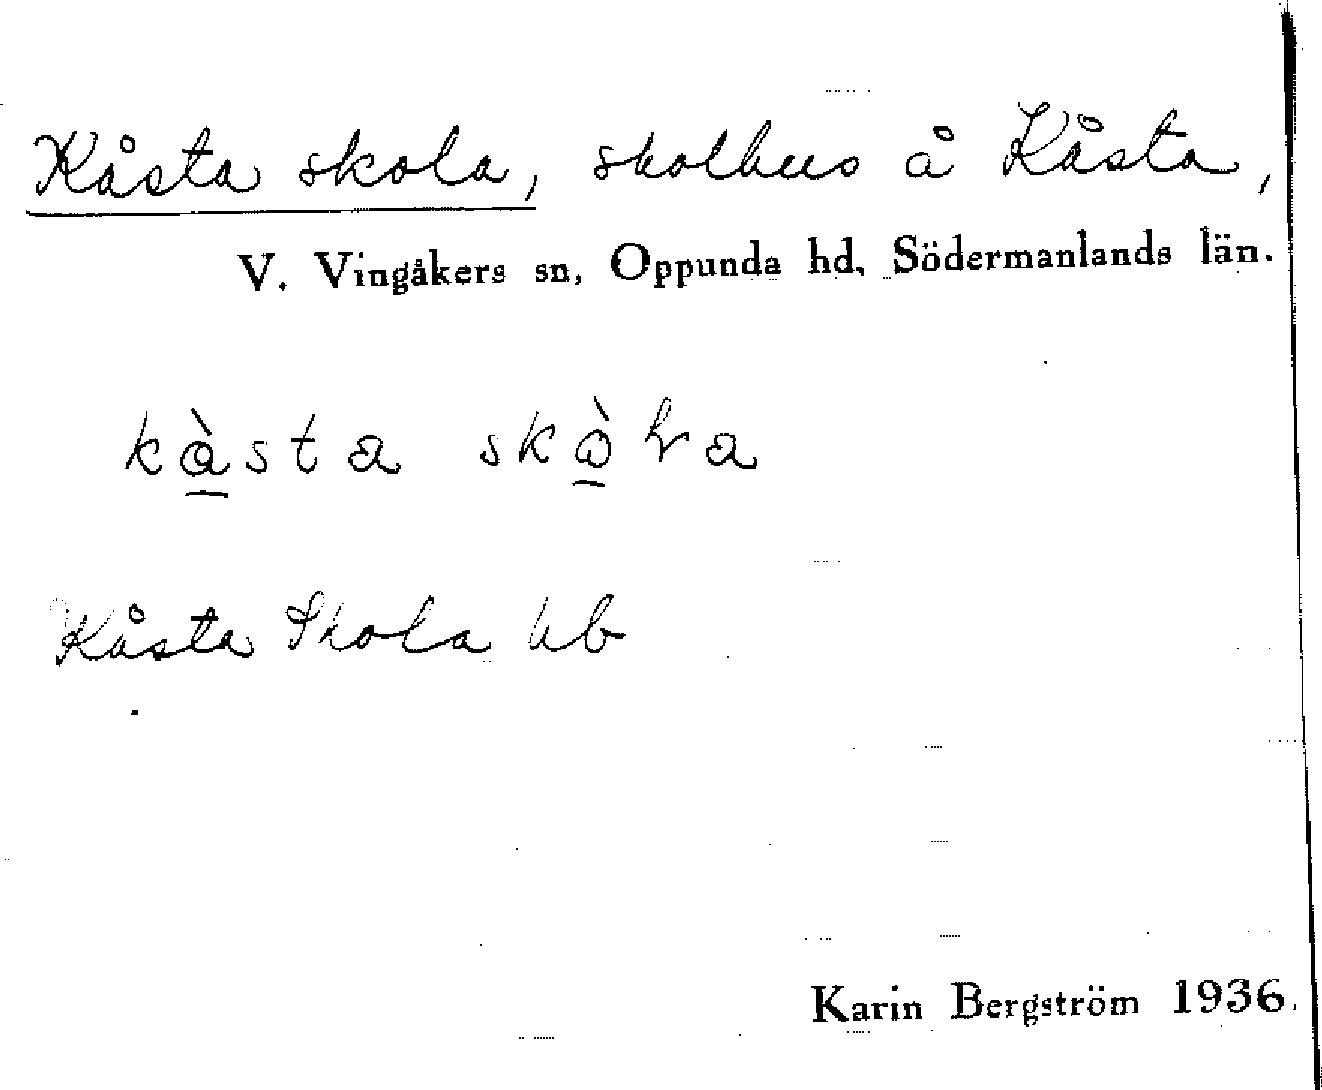 Kåsta skola, skolhus å Kåsta,
V. Vingåkers sn, Oppunda hd, Södermanlands län.
kàsta
Kåsta Skola hb
Karin Bergström 1936.